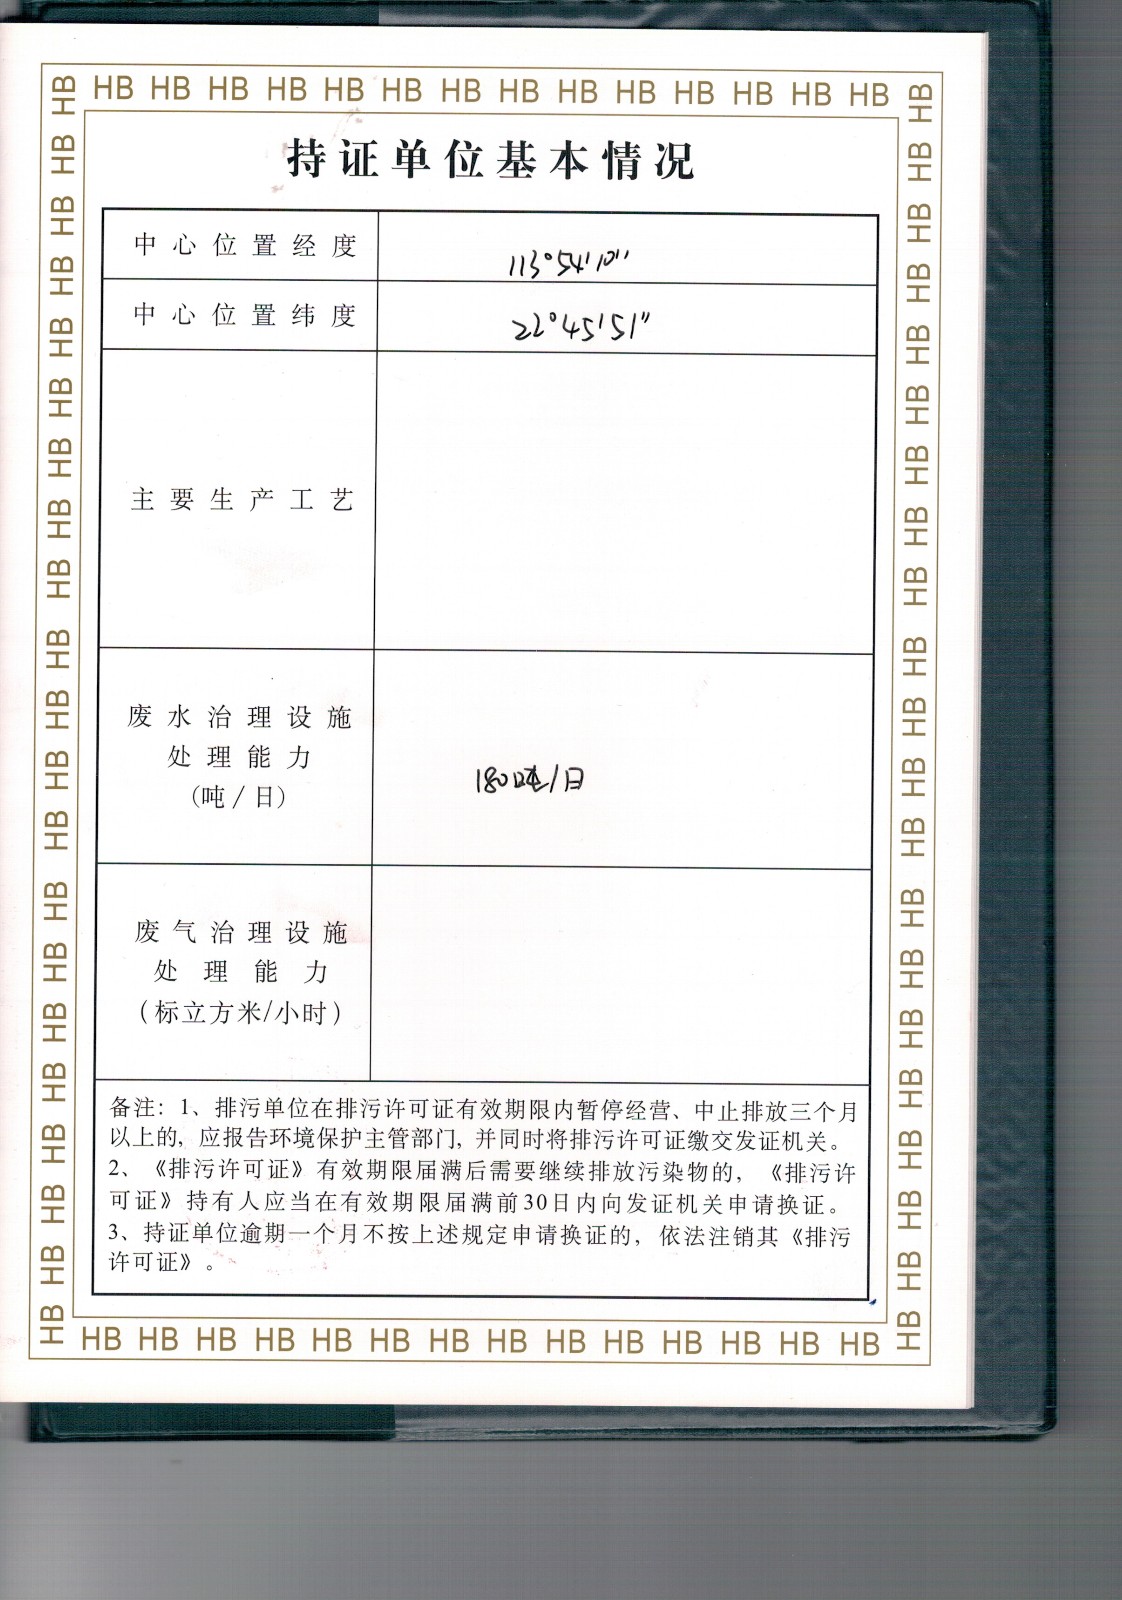 HB HB HB HB HB HB HB HB HB HB HB HB HB HB
持证单位基本情况
中心位置经度 113°54'10"
中心位置纬度 22°45'51"
主要生产工艺
废水治理设施
处理能力
(吨/日)
180吨/日
废气治理设施
处理能力
(标立方米/小时)
备注：1、排污单位在排污许可证有效期限内暂停经营、中止排放三个月
以上的，应报告环境保护主管部门，并同时将排污许可证缴交发证机关。
2、《排污许可证》有效期限届满后需要继续排放污染物的，《排污许
可证》持有人应当在有效期限届满前30日内向发证机关申请换证。
3、持证单位逾期一个月不按上述规定申请换证的，依法注销其《排污
许可证》。
HB HB HB HB HB HB HB HB HB HB HB HB HB HB